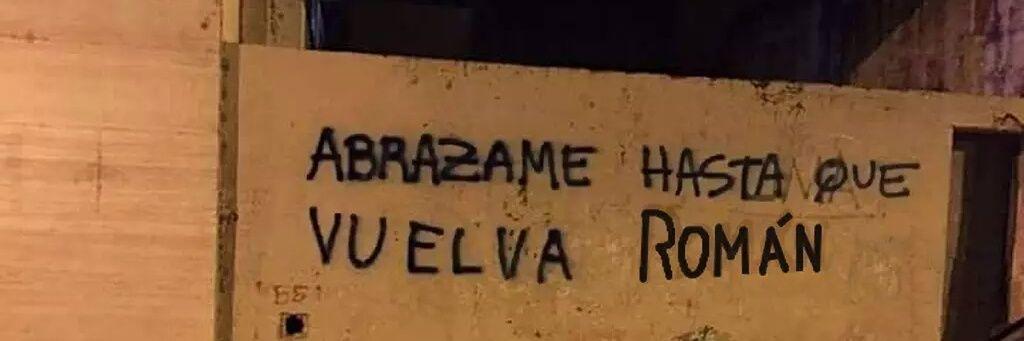 ABRAZAME HASTA QUE
VUELVA ROMÁN